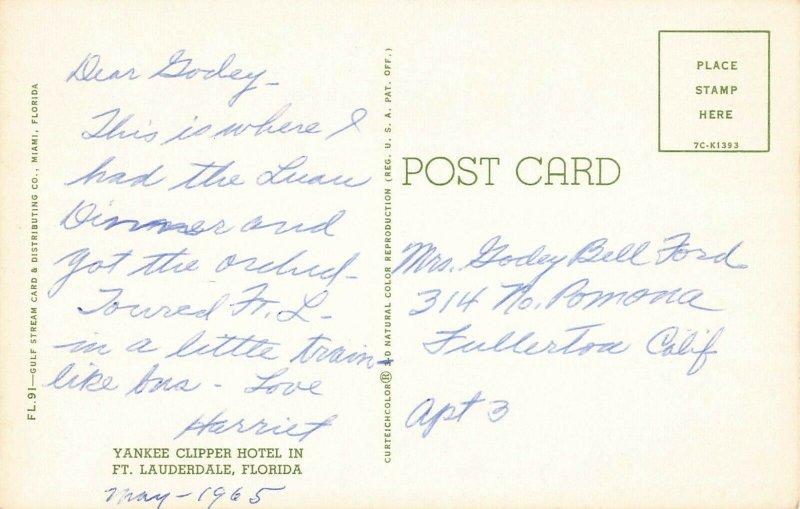 Dear Godey -
This is where I
had the Luau
Dinner and
got the orchid -
Toured Ft. L -
in a little train-
like bus - Love
Harriet
YANKEE CLIPPER HOTEL IN
FT. LAUDERDALE, FLORIDA
May - 1965
FL.91—GULF STREAM CARD & DISTRIBUTING CO., MIAMI, FLORIDA
CURTEICHCOLOR® 3-D NATURAL COLOR REPRODUCTION (REG. U. S. A. PAT. OFF.)
PLACE
STAMP
HERE
7C-K1393
POST CARD
Mrs. Godey Bell Ford
314 No. Pomona
Fullerton Calif
Apt 3